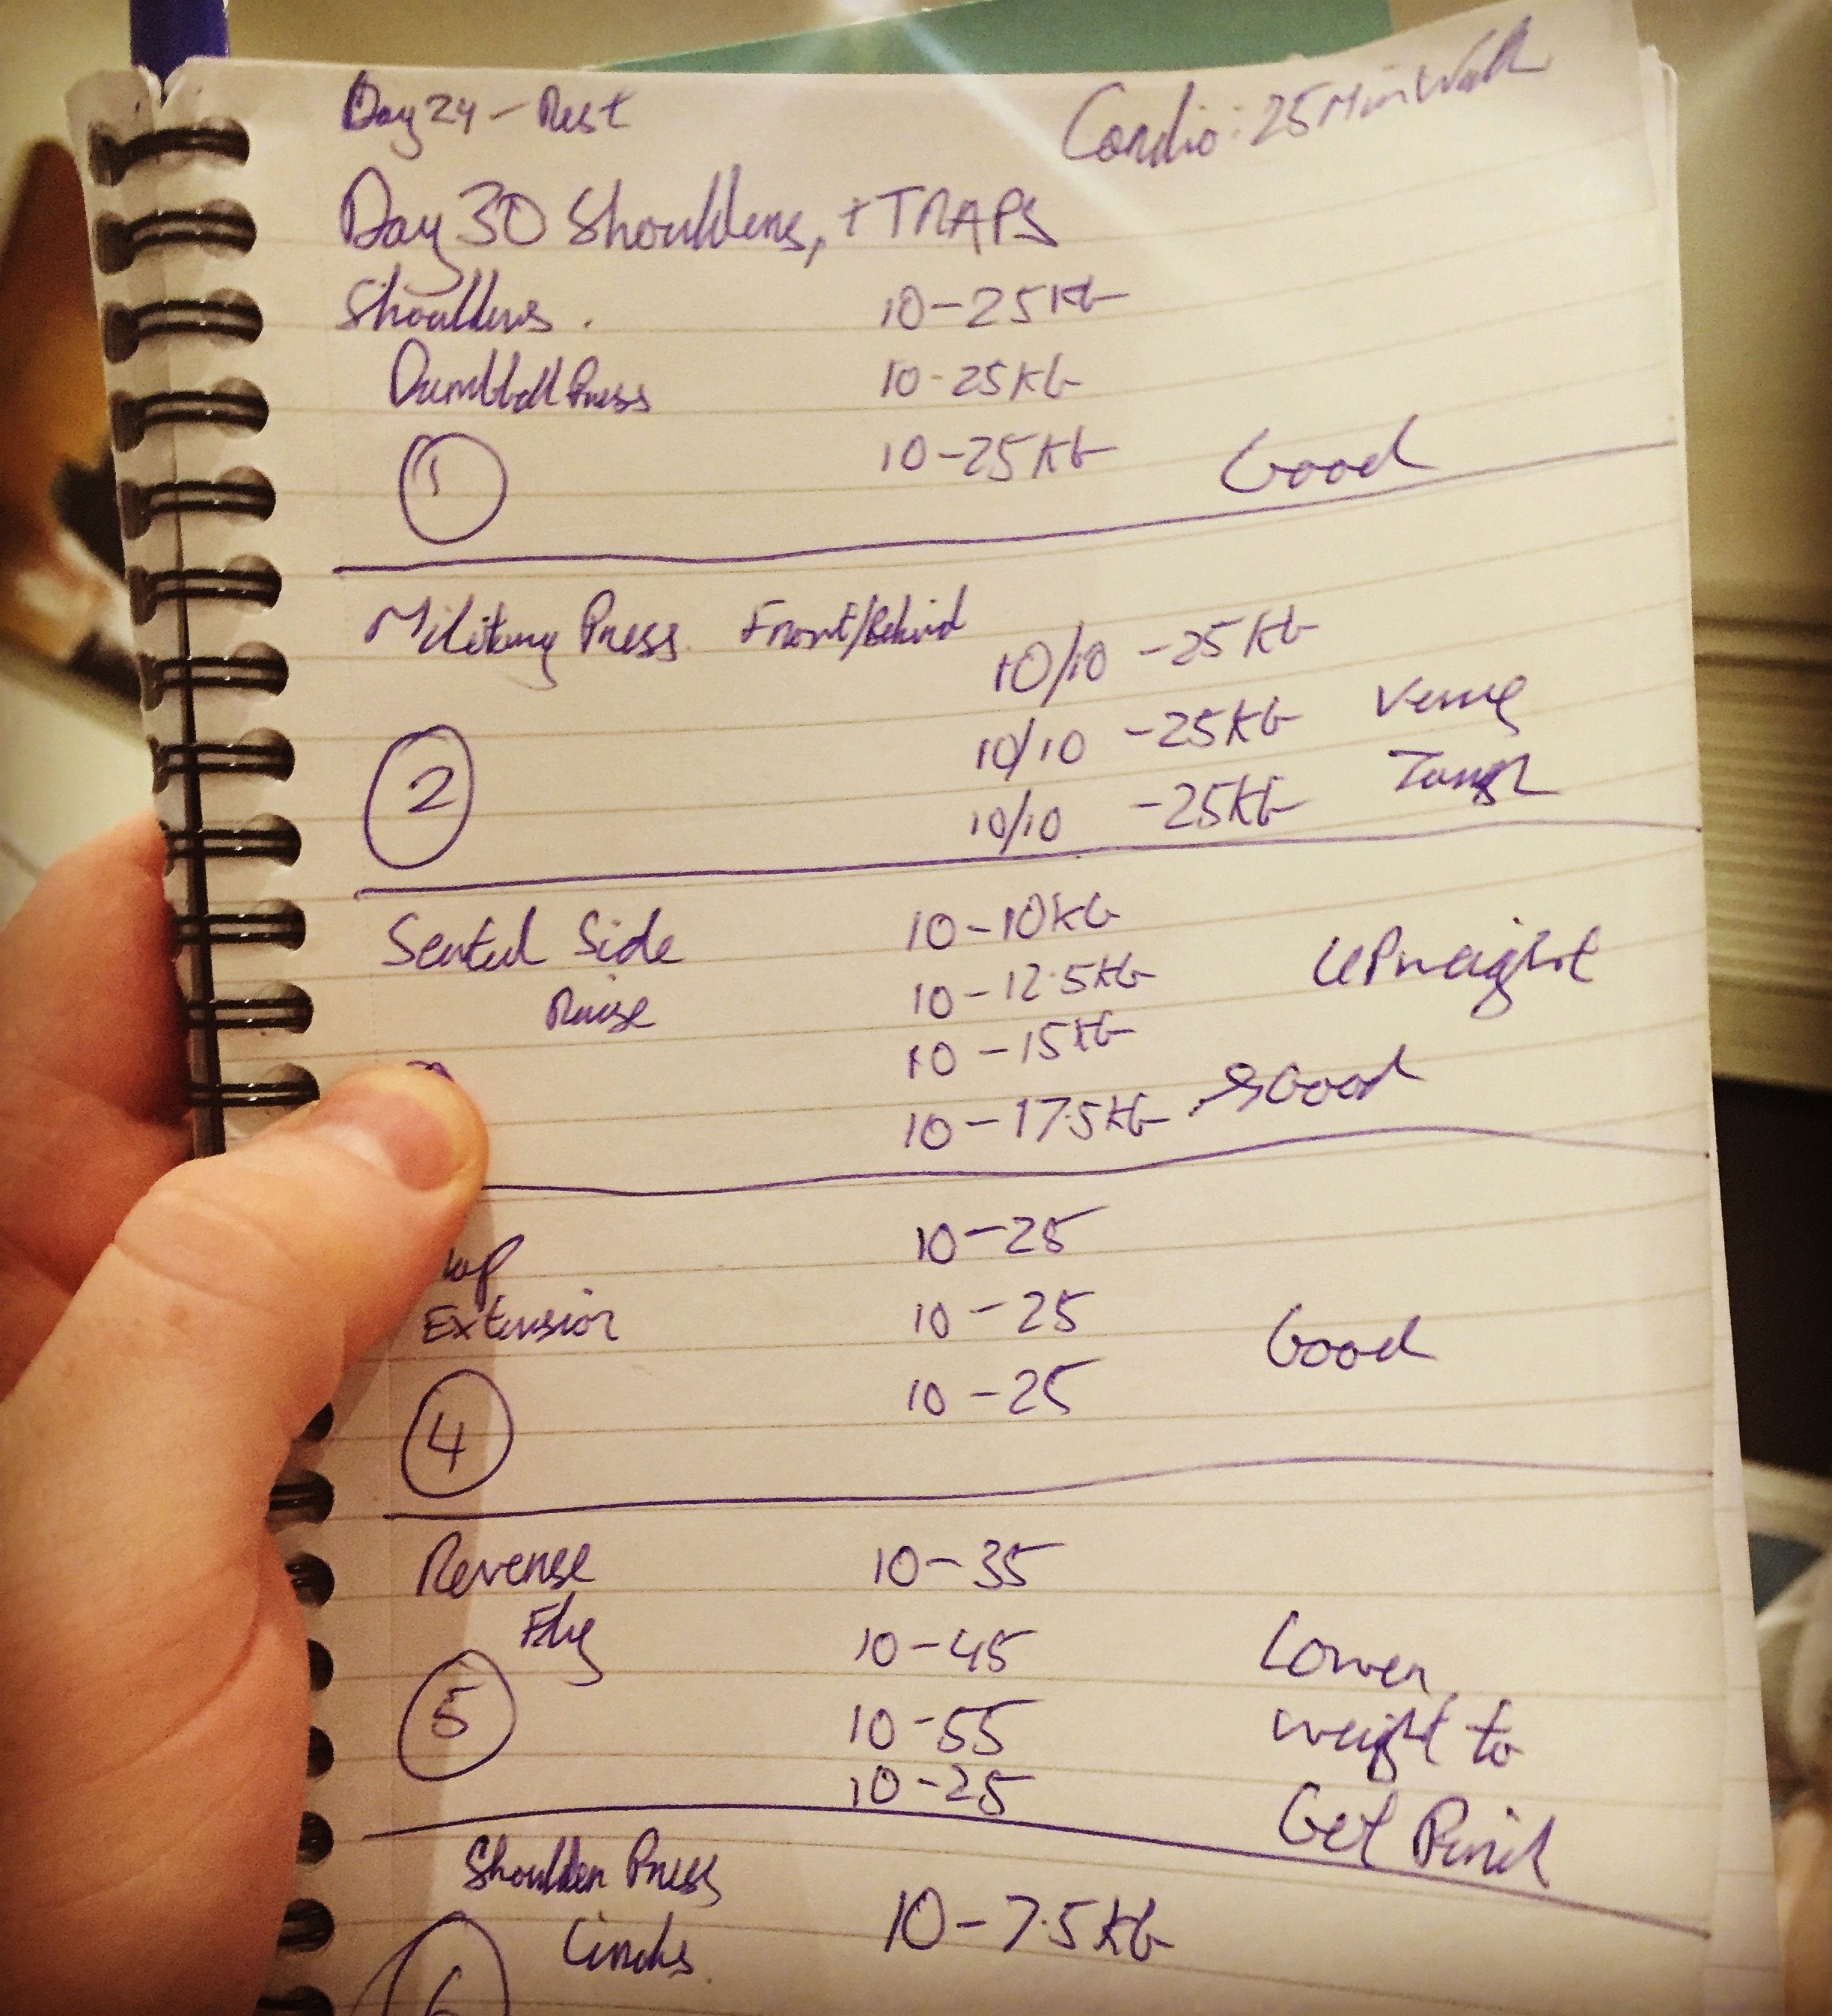 Day 24 - Rest Cardio: 25 Min Walk
Day 30 Shoulders, + TRAPS
Shoulders. 10-25KG
Dumbbell Press 10-25KG
1 10-25KG Good
Military Press Front/Behind 10/10 -25KG
10/10 -25KG Very
2 10/10 -25KG Tough
Seated Side 10-10KG
Raise 10-12.5KG UPweight
10-15KG
10-17.5KG Good
10-25
Extension 10-25
Good
4 10-25
Reverse 10-35
Fly 10-45 Lower
5 10-55 weight to
10-25 Get
Shoulder Press
10-7.5KG
6